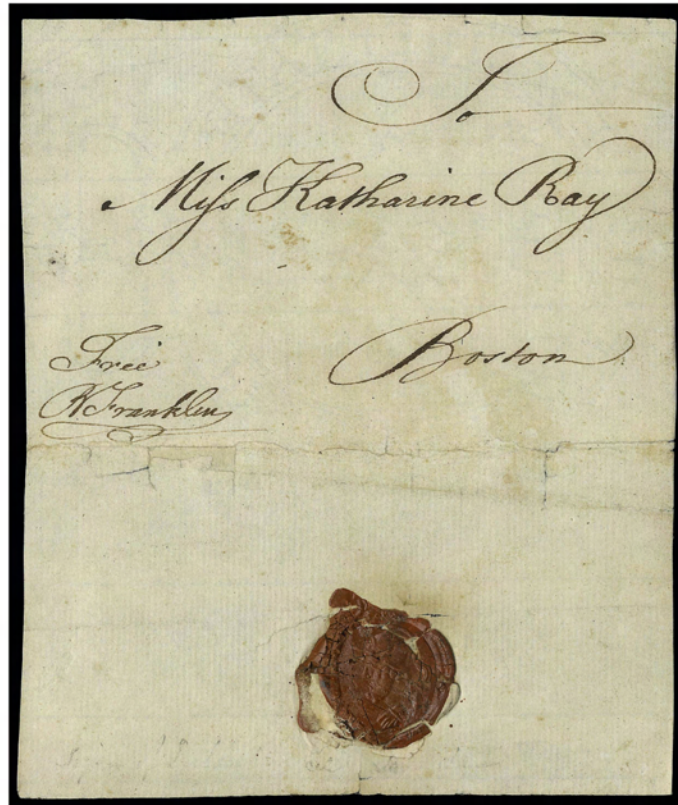 To
Miſs Katharine Ray
Boston
Free
B Franklin